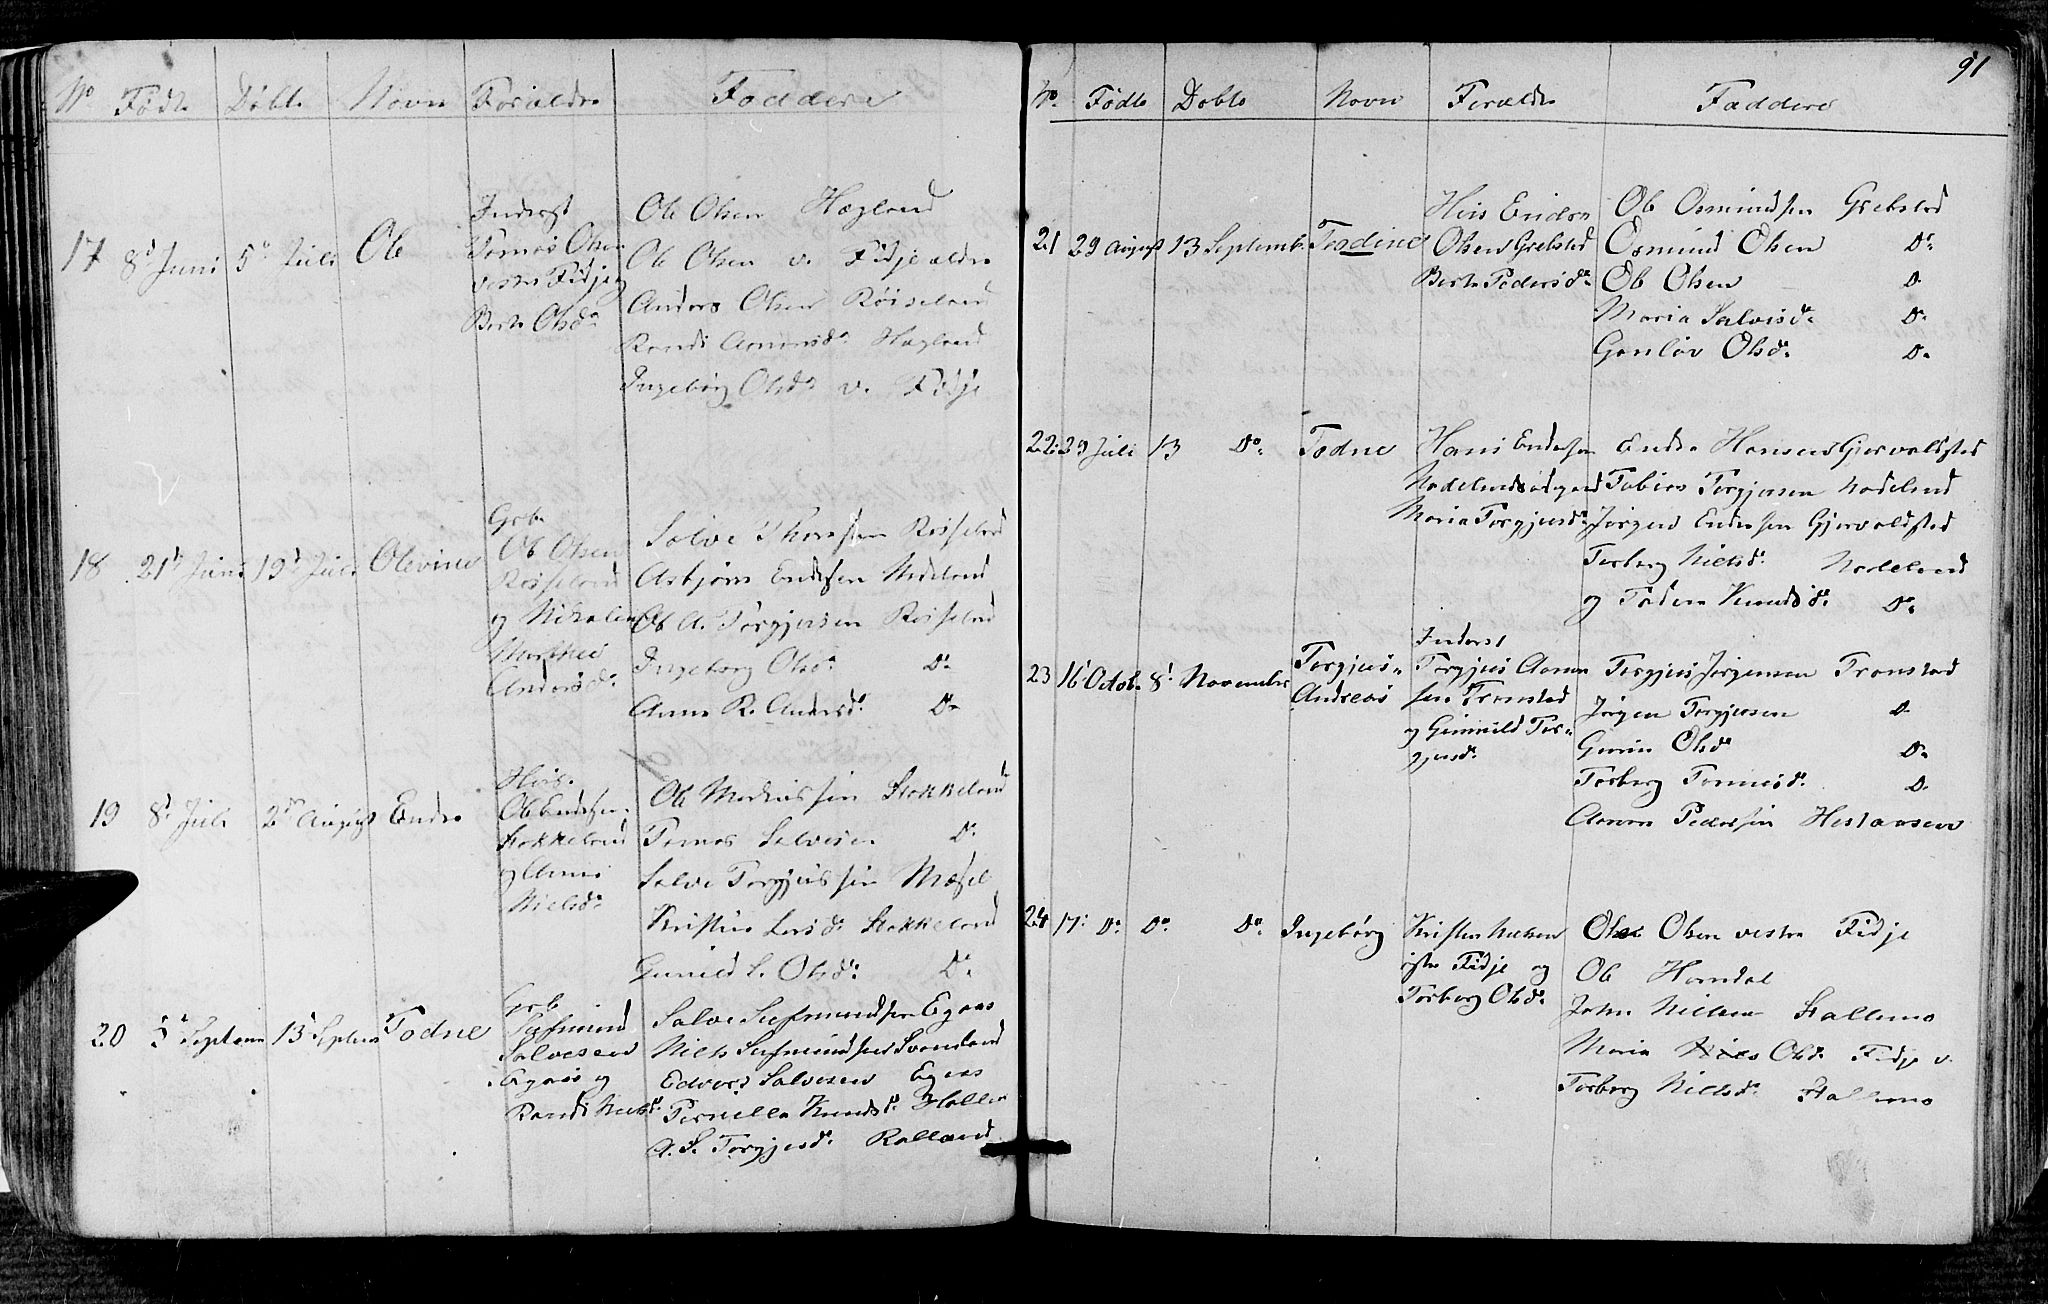 No Fødte Døbte Navn Forældre Faddere
17 8d Juni 5te Juli Ole
Inderst
Tomas Olsen
vestre Fidje og
Berte Olsdr
Ole Olsen Hægland
Ole Olsen v. Fidje ældre
Anders Olsen Røiseland
Randi Aanensdr Hægland
Ingebørg Olsdr v. Fidje
18 21de Juni 19d Juli Olevine
Grb.
Ole Olsen
Røisseland
og Nikolene
Marthea
Andersdr
Salve Thorsen Røisseland
Asbjørn Endresen Nodeland
Ole A. Torgjersen Røisseland
Ingeborg Olsdr Do
Anna R. Andersdr Do
19 8d Juli 2den August Endre
Hsb.
Ole Endresen
Stokkeland
og Anne
Nielsdr
Ole Markussen Stokkeland
Tomas Salvesen Do
Salve Torgjussen Mæsel
Kristine Larsdr Stokkeland
Gunild S. Olsdr Do
20 5te Septem 13 Septem Todne
Grb
Sufmund
Salvesen
Egaas og
Randi Nielsdr
Salve Sufmundsen Egaas
Niels Sufmundsen Svanland
Edvard Salvesen Egaas
Pernille Knudsdr Halle
A. S. Torgjusdr Ralland
91
No Fødte Døbte Navn Forældre Faddere
21 29 August 13 Septembr Teodine
Hsb. Endre
Olsen Grebstad
Berte Pedersdr
Ole Osmundsen Grebstad
Osmund Olsen Do
Ole Olsen Do
Maria Salvisdr Do
Gunløv Olsdr Do
22 29 Juli 13 Do Todne
Hans Endresen
Nodelandsødegaard
Maria Torgjusdr
Endre Hansen Gjervoldstad
Tobias Torgjersen Nodeland
Jørgen Endresen Gjervoldstad
Torborg Nielsdr Nodeland
og Todne Knudsdr Do
23 16 Octob. 8d November Torgjus Andreas
Inderst
Torgjus Aanen
sen Tronstad
og Gunnild Tor-
gjusdr
Torgjus Jørgensen Tronstad
Jørgen Torgjersen Do
Gurin Olsdr Do
Torborg Tomasdr Do
Aanon Pedersen Hestaasen
24 17d Do Do Do Ingebørg
Kristen Nielsen
østre Fidje og
Torborg Olsdr
Ole Olsen vestre Fidje
Ole Homdal
John Nielsen Stallemo
Maria Olsdr Fidje v.
Torborg Nielsdr Stallemo